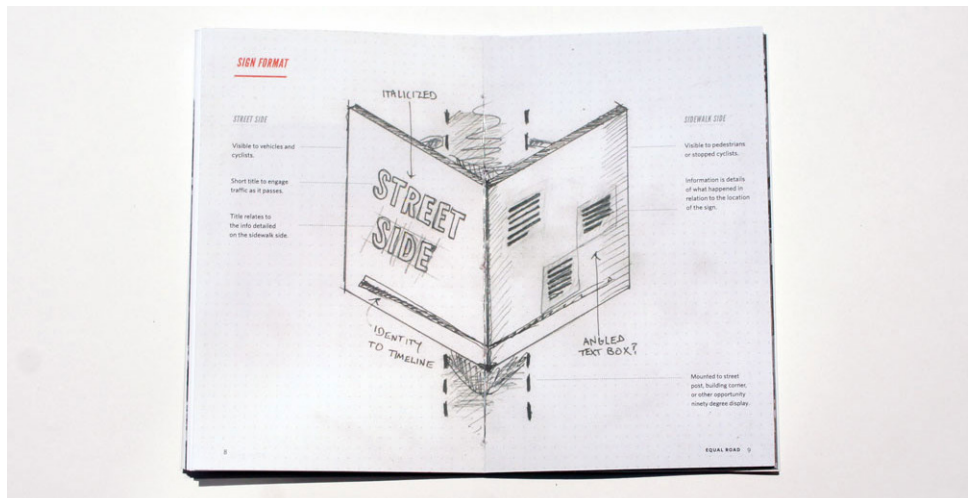 SIGN FORMAT
STREET SIDE
Visible to vehicles and
cyclists.
Short title to engage
traffic as it passes.
Title relates to
the info detailed
on the sidewalk side.
ITALICIZED
STREET
SIDE
IDENTITY
TO TIMELINE
ANGLED
TEXT BOX?
SIDEWALK SIDE
Visible to pedestrians
or stopped cyclists.
Information is details
of what happened in
relation to the location
of the sign.
Mounted to street
post, building corner,
or other opportunity
ninety degree display.
8
EQUAL ROAD 9